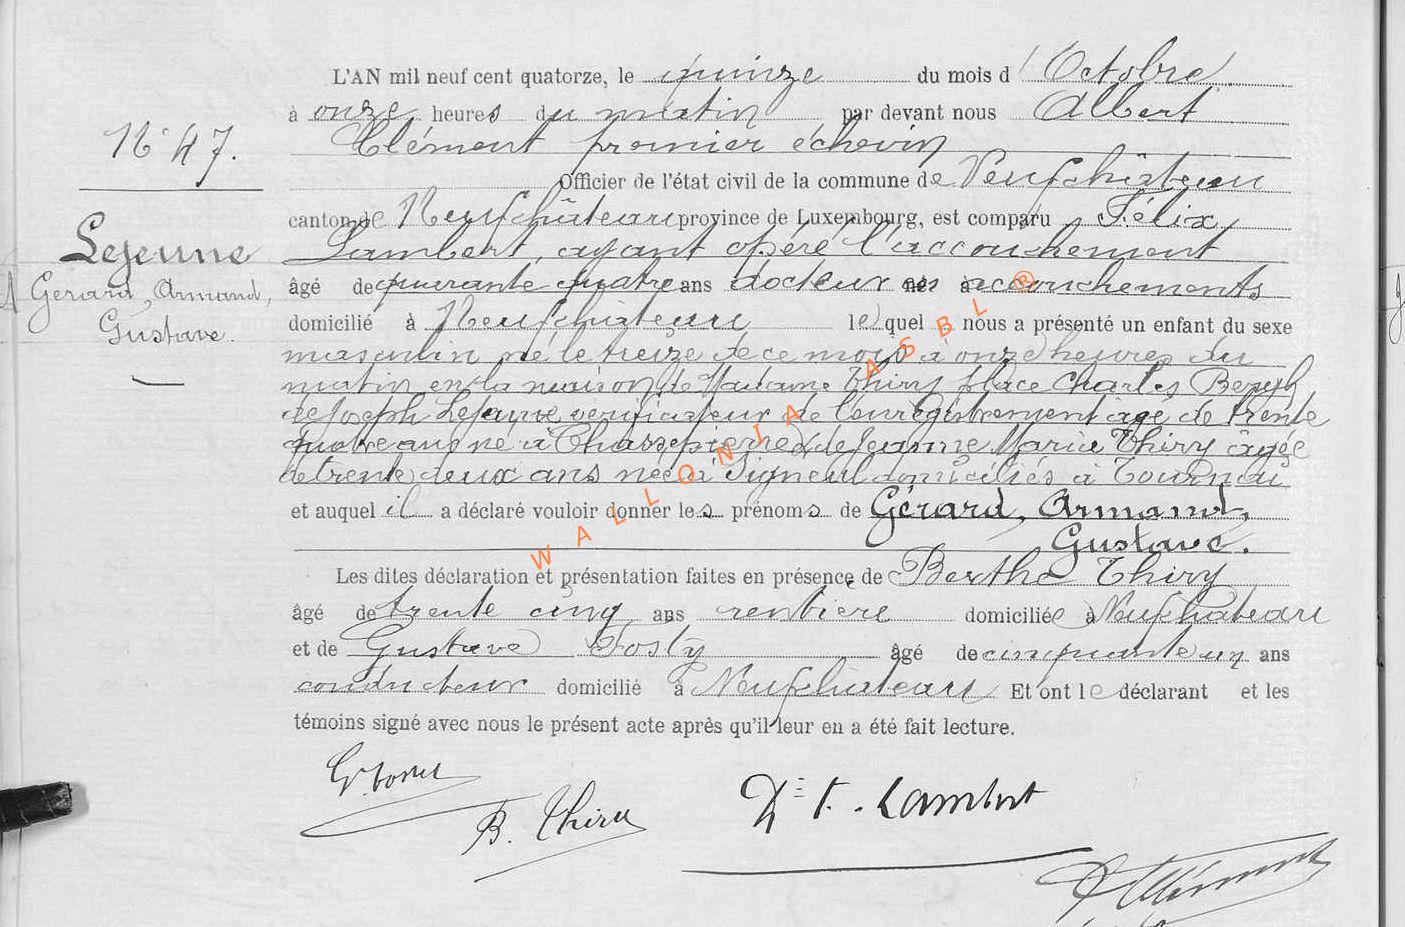 L'AN mil neuf cent quatorze, le quinze du mois d'Octobre
à onze heures du matin par devant nous Albert
Clément premier échevin
Officier de l'état civil de la commune de Neufchâteau
canton de Neufchâteau province de Luxembourg, est comparu Félix
Lambert, ayant opéré l'accouchement
âgé de quarante quatre ans docteur ès accouchements
domicilié à Neufchâteau lequel nous a présenté un enfant du sexe
masculin né le treize de ce mois à onze heures du
matin en la maison de Madame Thiry place Charles Bergh
de Joseph Lejeune, vérificateur de l'enregistrement âgé de trente
quatre ans né à Chassepierre & de Jeanne Marie Thiry âgée
de trente deux ans née à Signeul domiciliés à Tournai
et auquel il a déclaré vouloir donner les prénoms de Gérard, Armand,
Gustave.
Les dites déclaration et présentation faites en présence de Berthe Thiry
âgé de trente cinq ans rentière domiciliée à Neufchâteau
et de Gustave Fosty âgé de cinquante un ans
conducteur domicilié à Neufchâteau Et ont le déclarant et les
témoins signé avec nous le présent acte après qu'il leur en a été fait lecture.
N° 47.
Lejeune
Gérard, Armand,
Gustave.
B. Thiry
Dr F. Lambert
A Clément
WALLONIA ASBL ®